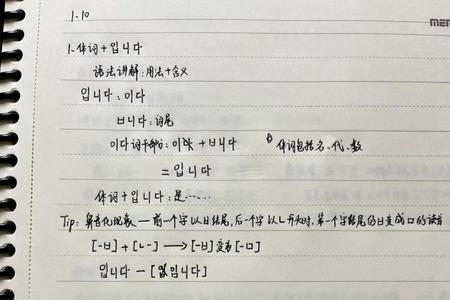 1-10
MEN
1. 体词+입니다
语法讲解:用法+含义
입니다:이다
ㅂ니다:词尾
이다词干部分:이다+ㅂ니다 *体词包括名、代、数
=입니다
体词+입니다:是……
Tip:鼻音化现象一前一个字以ㅂ结尾,后一个字以ㄴ开头时,第一个字结尾的ㅂ变成ㅁ的读音
[-ㅂ]+[ㄴ-]→[-ㅂ]变为[-ㅁ]
입니다—[임니다]